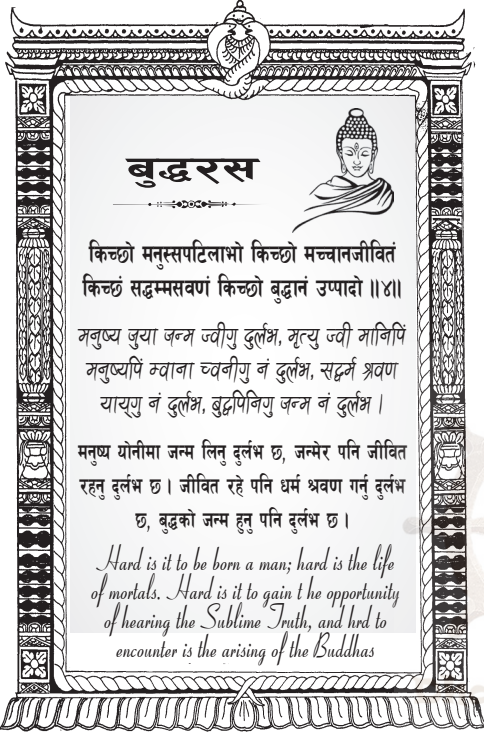 बुद्धरस
किच्छो मनुस्सपटिलाभो किच्छो मच्चानजीवितं
किच्छं सद्धम्मसवणं किच्छो बुद्धानं उप्पादो ॥४॥
मनुष्य जुया जन्म ज्वीगु दुर्लभ, मृत्यु ज्वी मानिपिं
मनुष्यपिं म्वाना च्वनीगु नं दुर्लभ, सद्धर्म श्रवण
यायगु नं दुर्लभ, बुद्धपिनिगु जन्म नं दुर्लभ ।
मनुष्य योनीमा जन्म लिनु दुर्लभ छ, जन्मेर पनि जीवित
रहनु दुर्लभ छ । जीवित रहे पनि धर्म श्रवण गर्नु दुर्लभ
छ, बुद्धको जन्म हुनु पनि दुर्लभ छ ।
Hard is it to be born a man; hard is the life
of mortals. Hard is it to gain t he opportunity
of hearing the Sublime Truth, and hrd to
encounter is the arising of the Buddhas